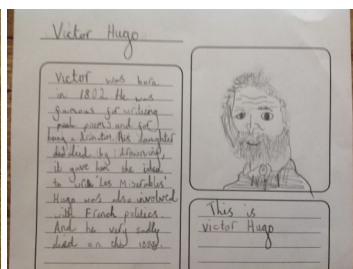 Victor Hugo
Victor was born
in 1802 He was
famous for writing
poems and for
being a dramatist. His daughter
died by drowning,
it gave him the idea
to write 'Les Miserables'
Hugo was also involved
with French politics.
And he very sadly
died on the
This is
victor Hugo